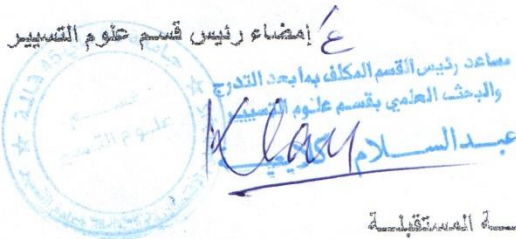 ع/ إمضاء رئيس قسم علوم التسيير
مساعد رئيس القسم المكلف بما بعد التدرج
والبحث العلمي بقسم علوم التسيير
عبد السلام
قسم
علوم التسيير
المستقبلة